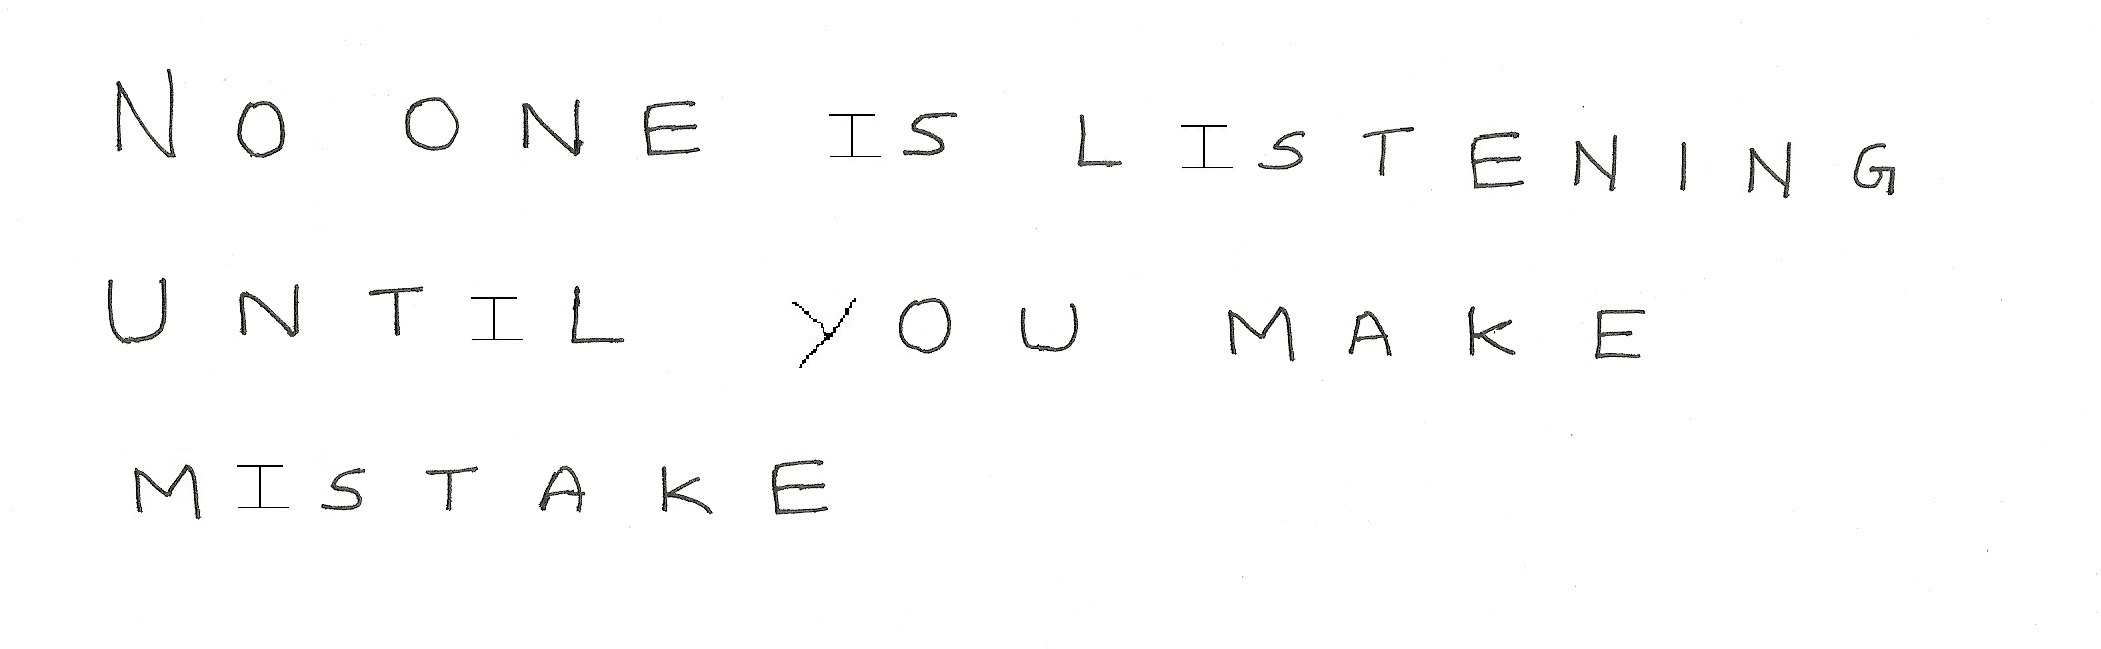 NO ONE IS LISTENING
UNTIL YOU MAKE
MISTAKE